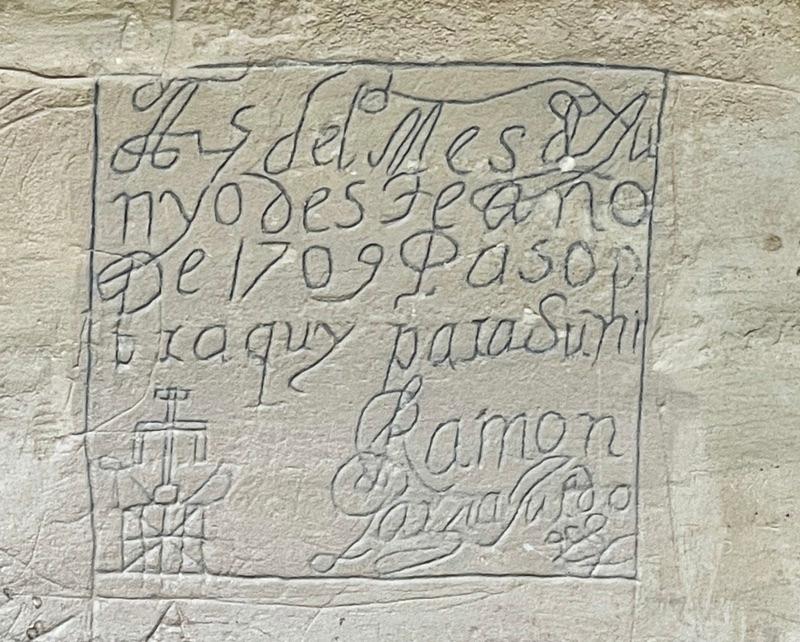 A 5 del Mes D Ju
nyo deste año
De 1709 Paso p
or aquy para Suñi
Ramon
Garzia Jurdo